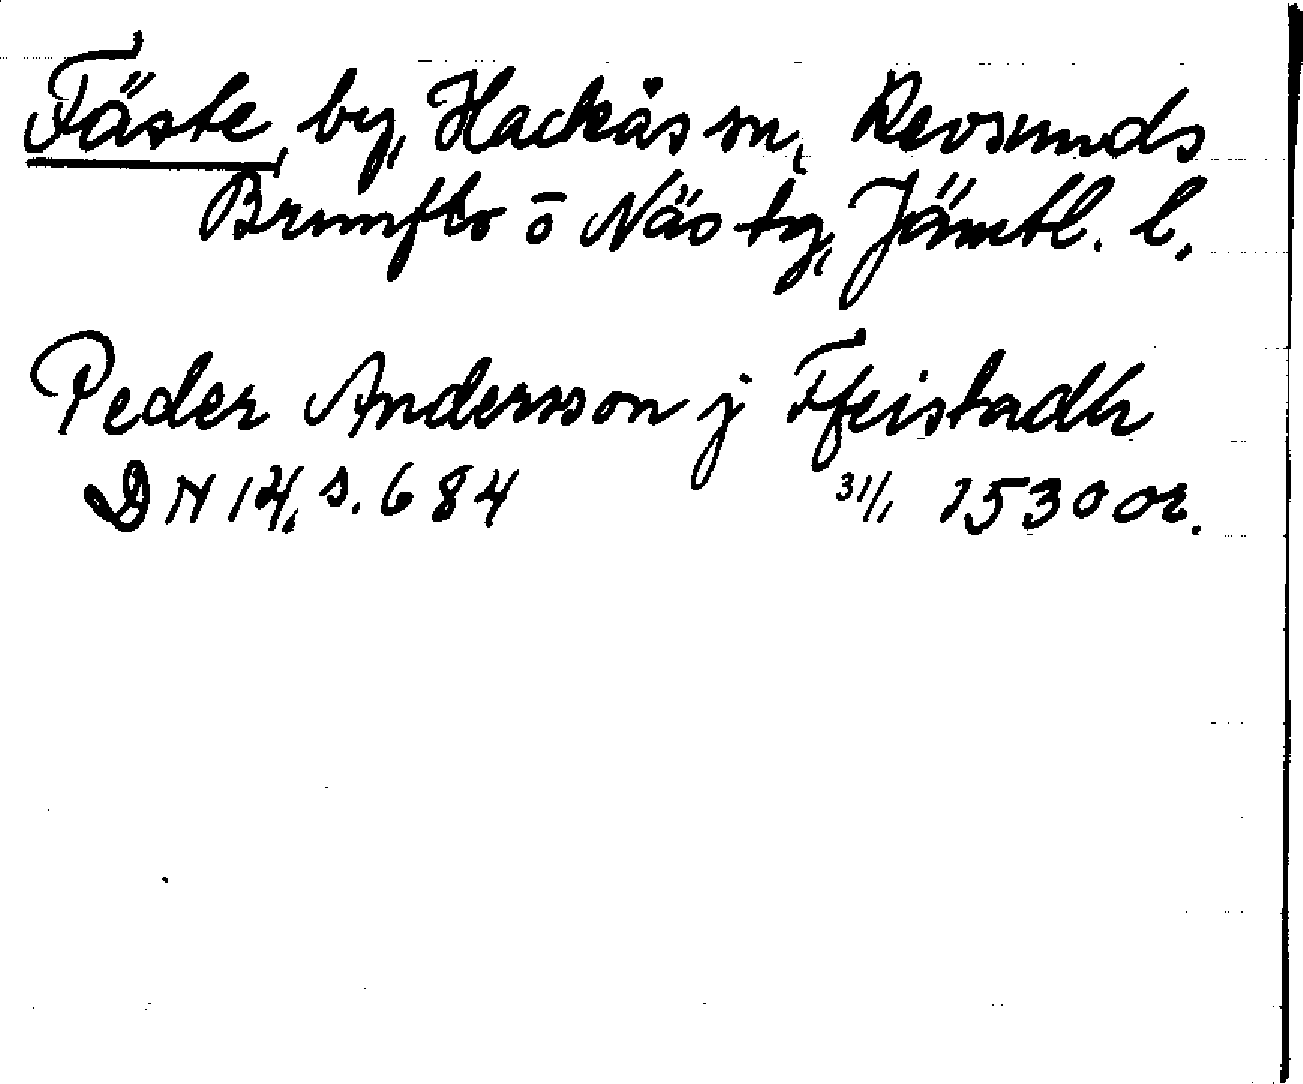 Fäste, by, Hackås sn, Revsunds
Brunflo o Näs tg, Jämtl. l.
Peder Andersson j Ffeistadh
DN 14, s. 684 31/1 1530 or.